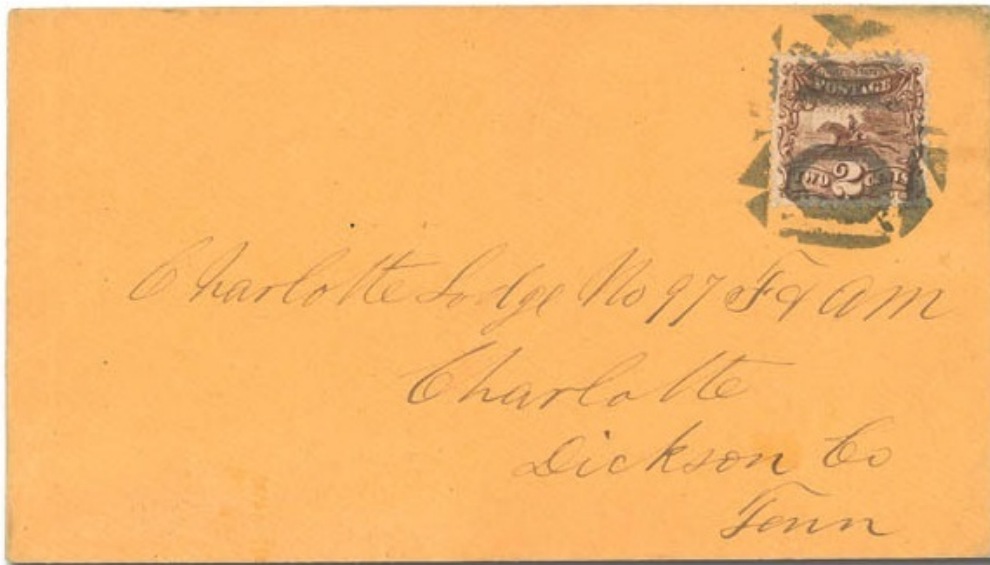 POSTAGE
TWO 2 CENTS
Charlotte Lodge No 97 F & AM
Charlotte
Dickson Co
Tenn